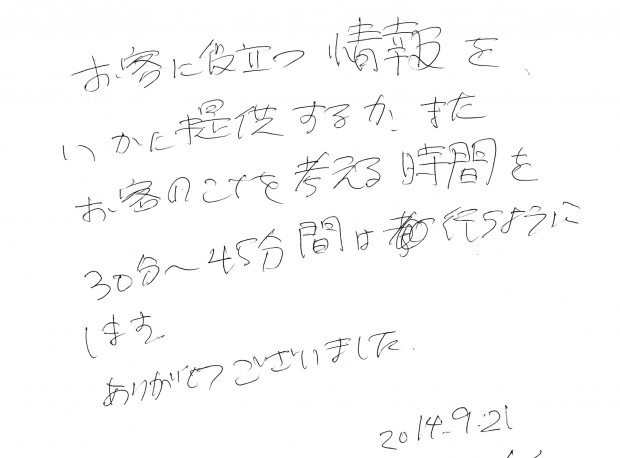 お客に役立つ情報を、
いかに提供するか、また
お客のことを考える時間を
30分〜45分間は行うように
します。
ありがとうございました.
2014.9.21